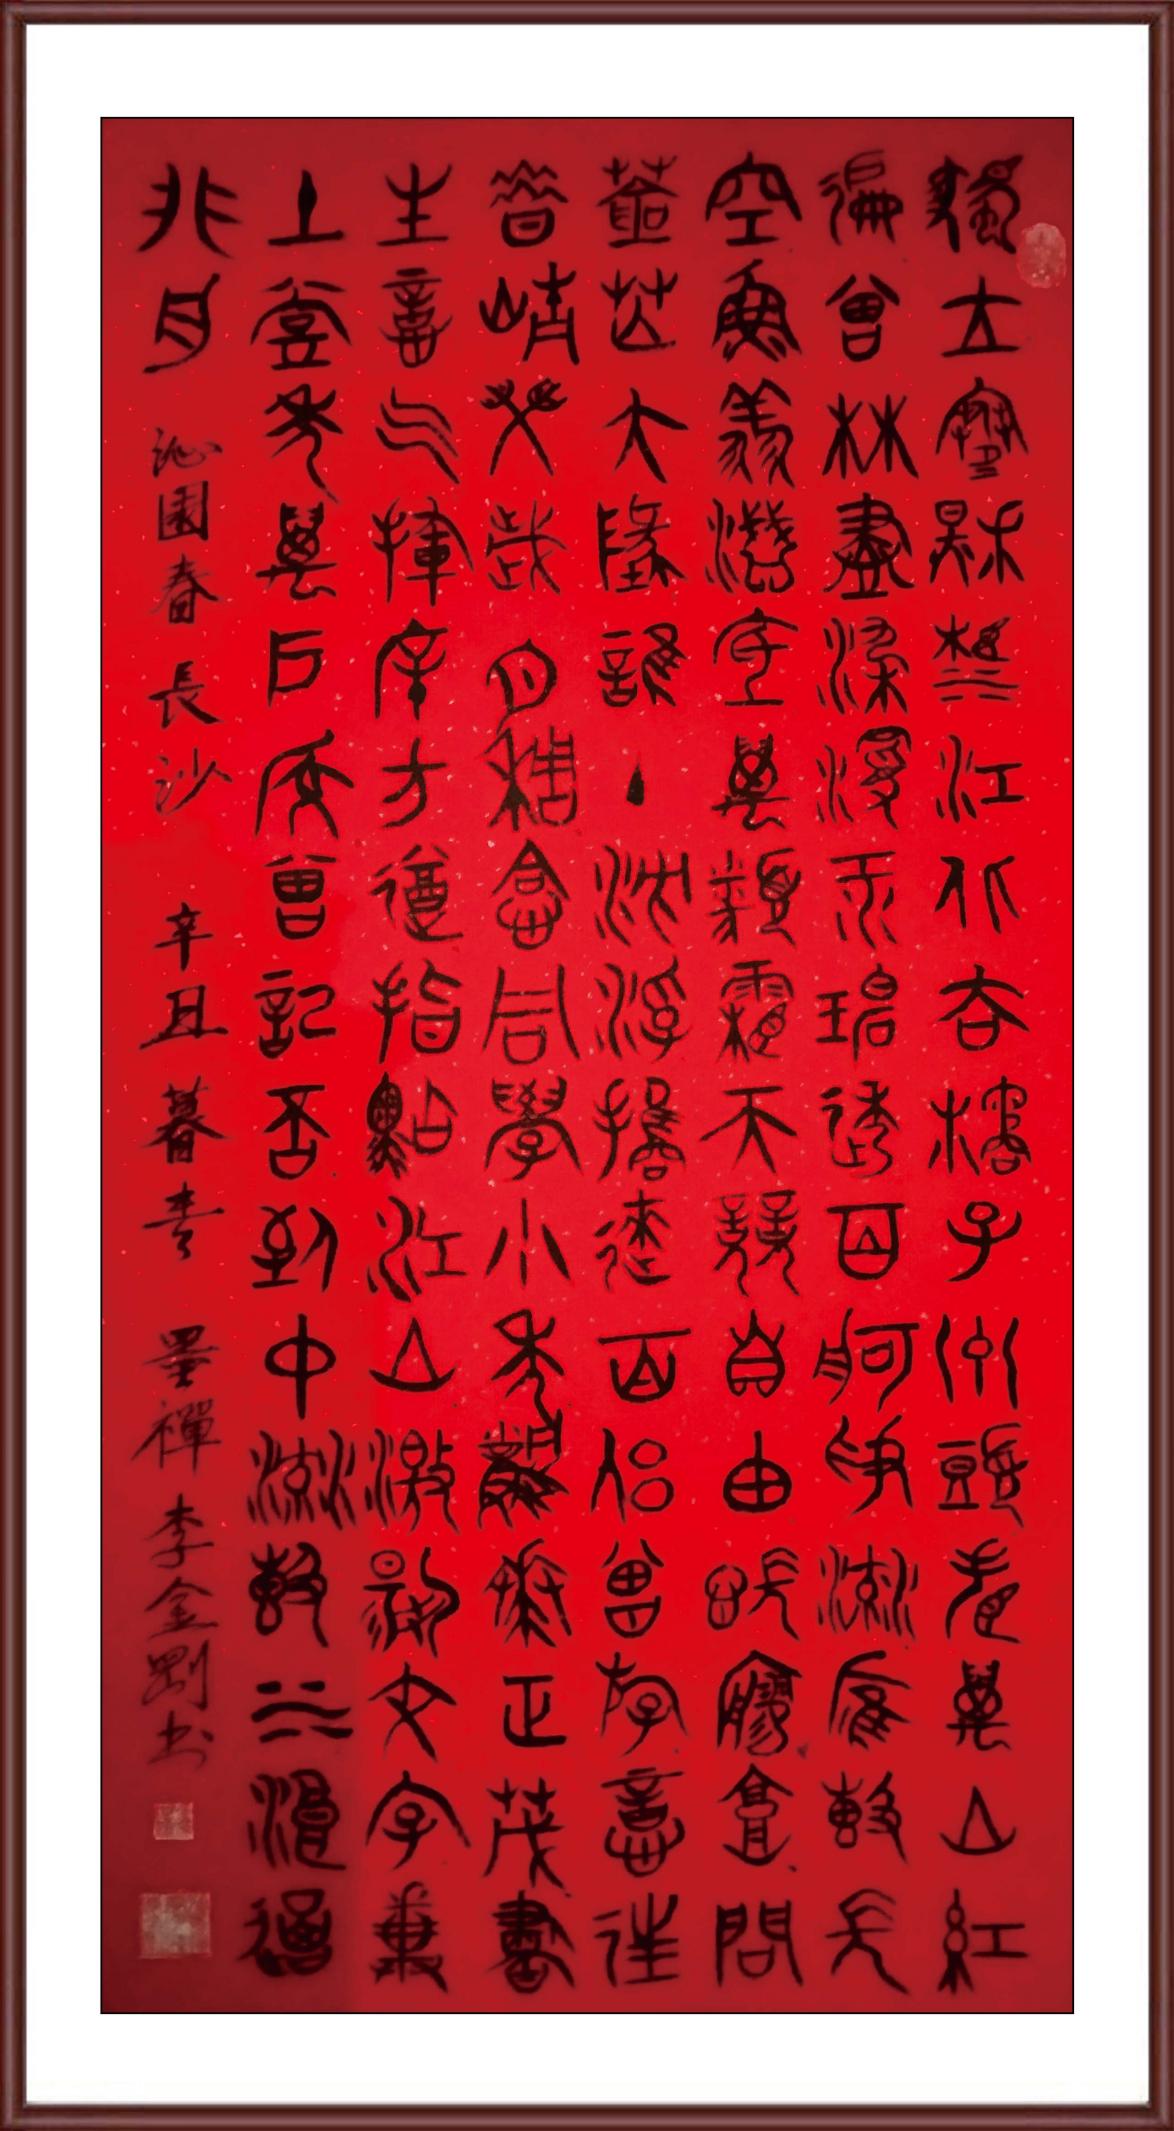 獨立寒秋湘江北去橘子洲頭看萬山紅
遍層林盡染漫江碧透百舸爭流鷹擊長
空魚翔淺底萬類霜天競自由悵寥廓問
蒼茫大地誰主沉浮攜來百侶曾遊憶往
昔崢嶸歲月稠恰同學少年風華正茂書
生意氣揮斥方遒指點江山激揚文字糞
土當年萬戶侯曾記否到中流擊水浪遏
飛舟 沁園春 長沙 辛丑暮春 墨禪 李金剛书